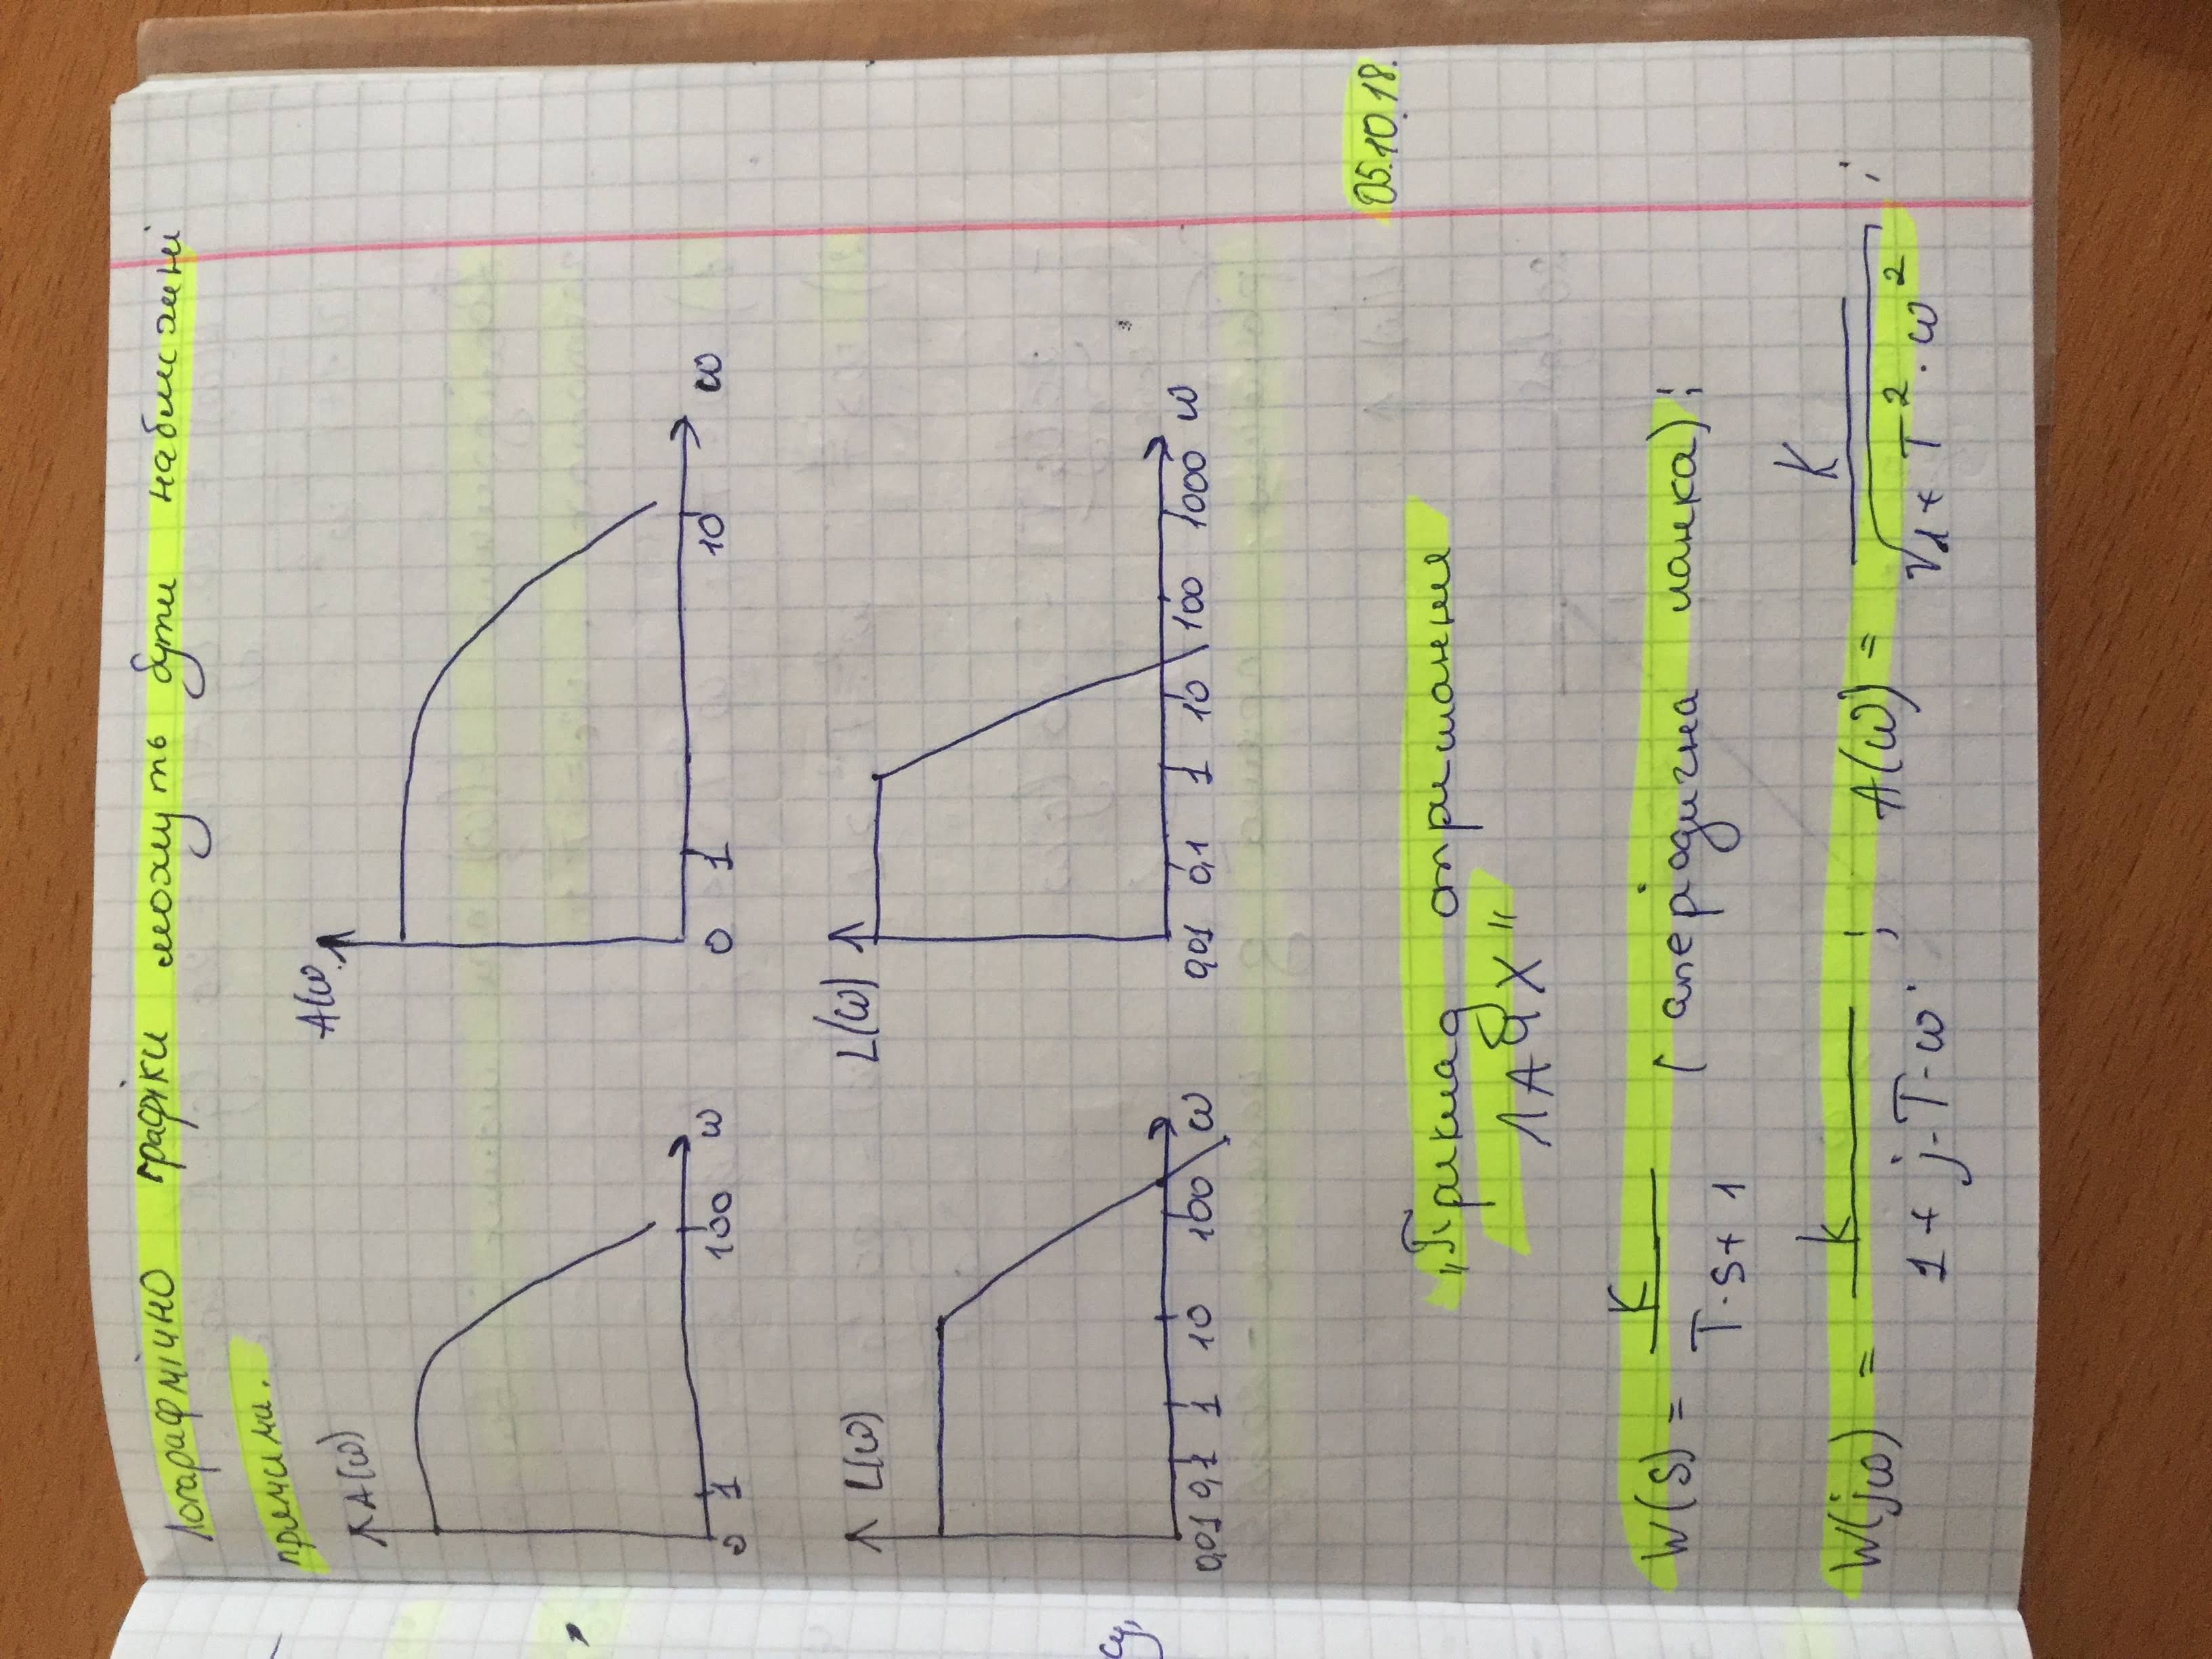 Логарафмічно графіки можуть бути наближині
прямими.
A(ω)
A(ω
0 1 100 ω
0 1 10 ω
L(ω)
L(ω)
0,01 0,1 1 10 100 ω
0,01 0,1 1 10 100 1000 ω
05.10.18.
„Приклад отримання
ЛАЧХ"
W(s) = K / T·s+1 (аперіодична ланка);
W(jω) = k / 1+j·T·ω ; A(ω) = K / √1+T²·ω² ;
су,